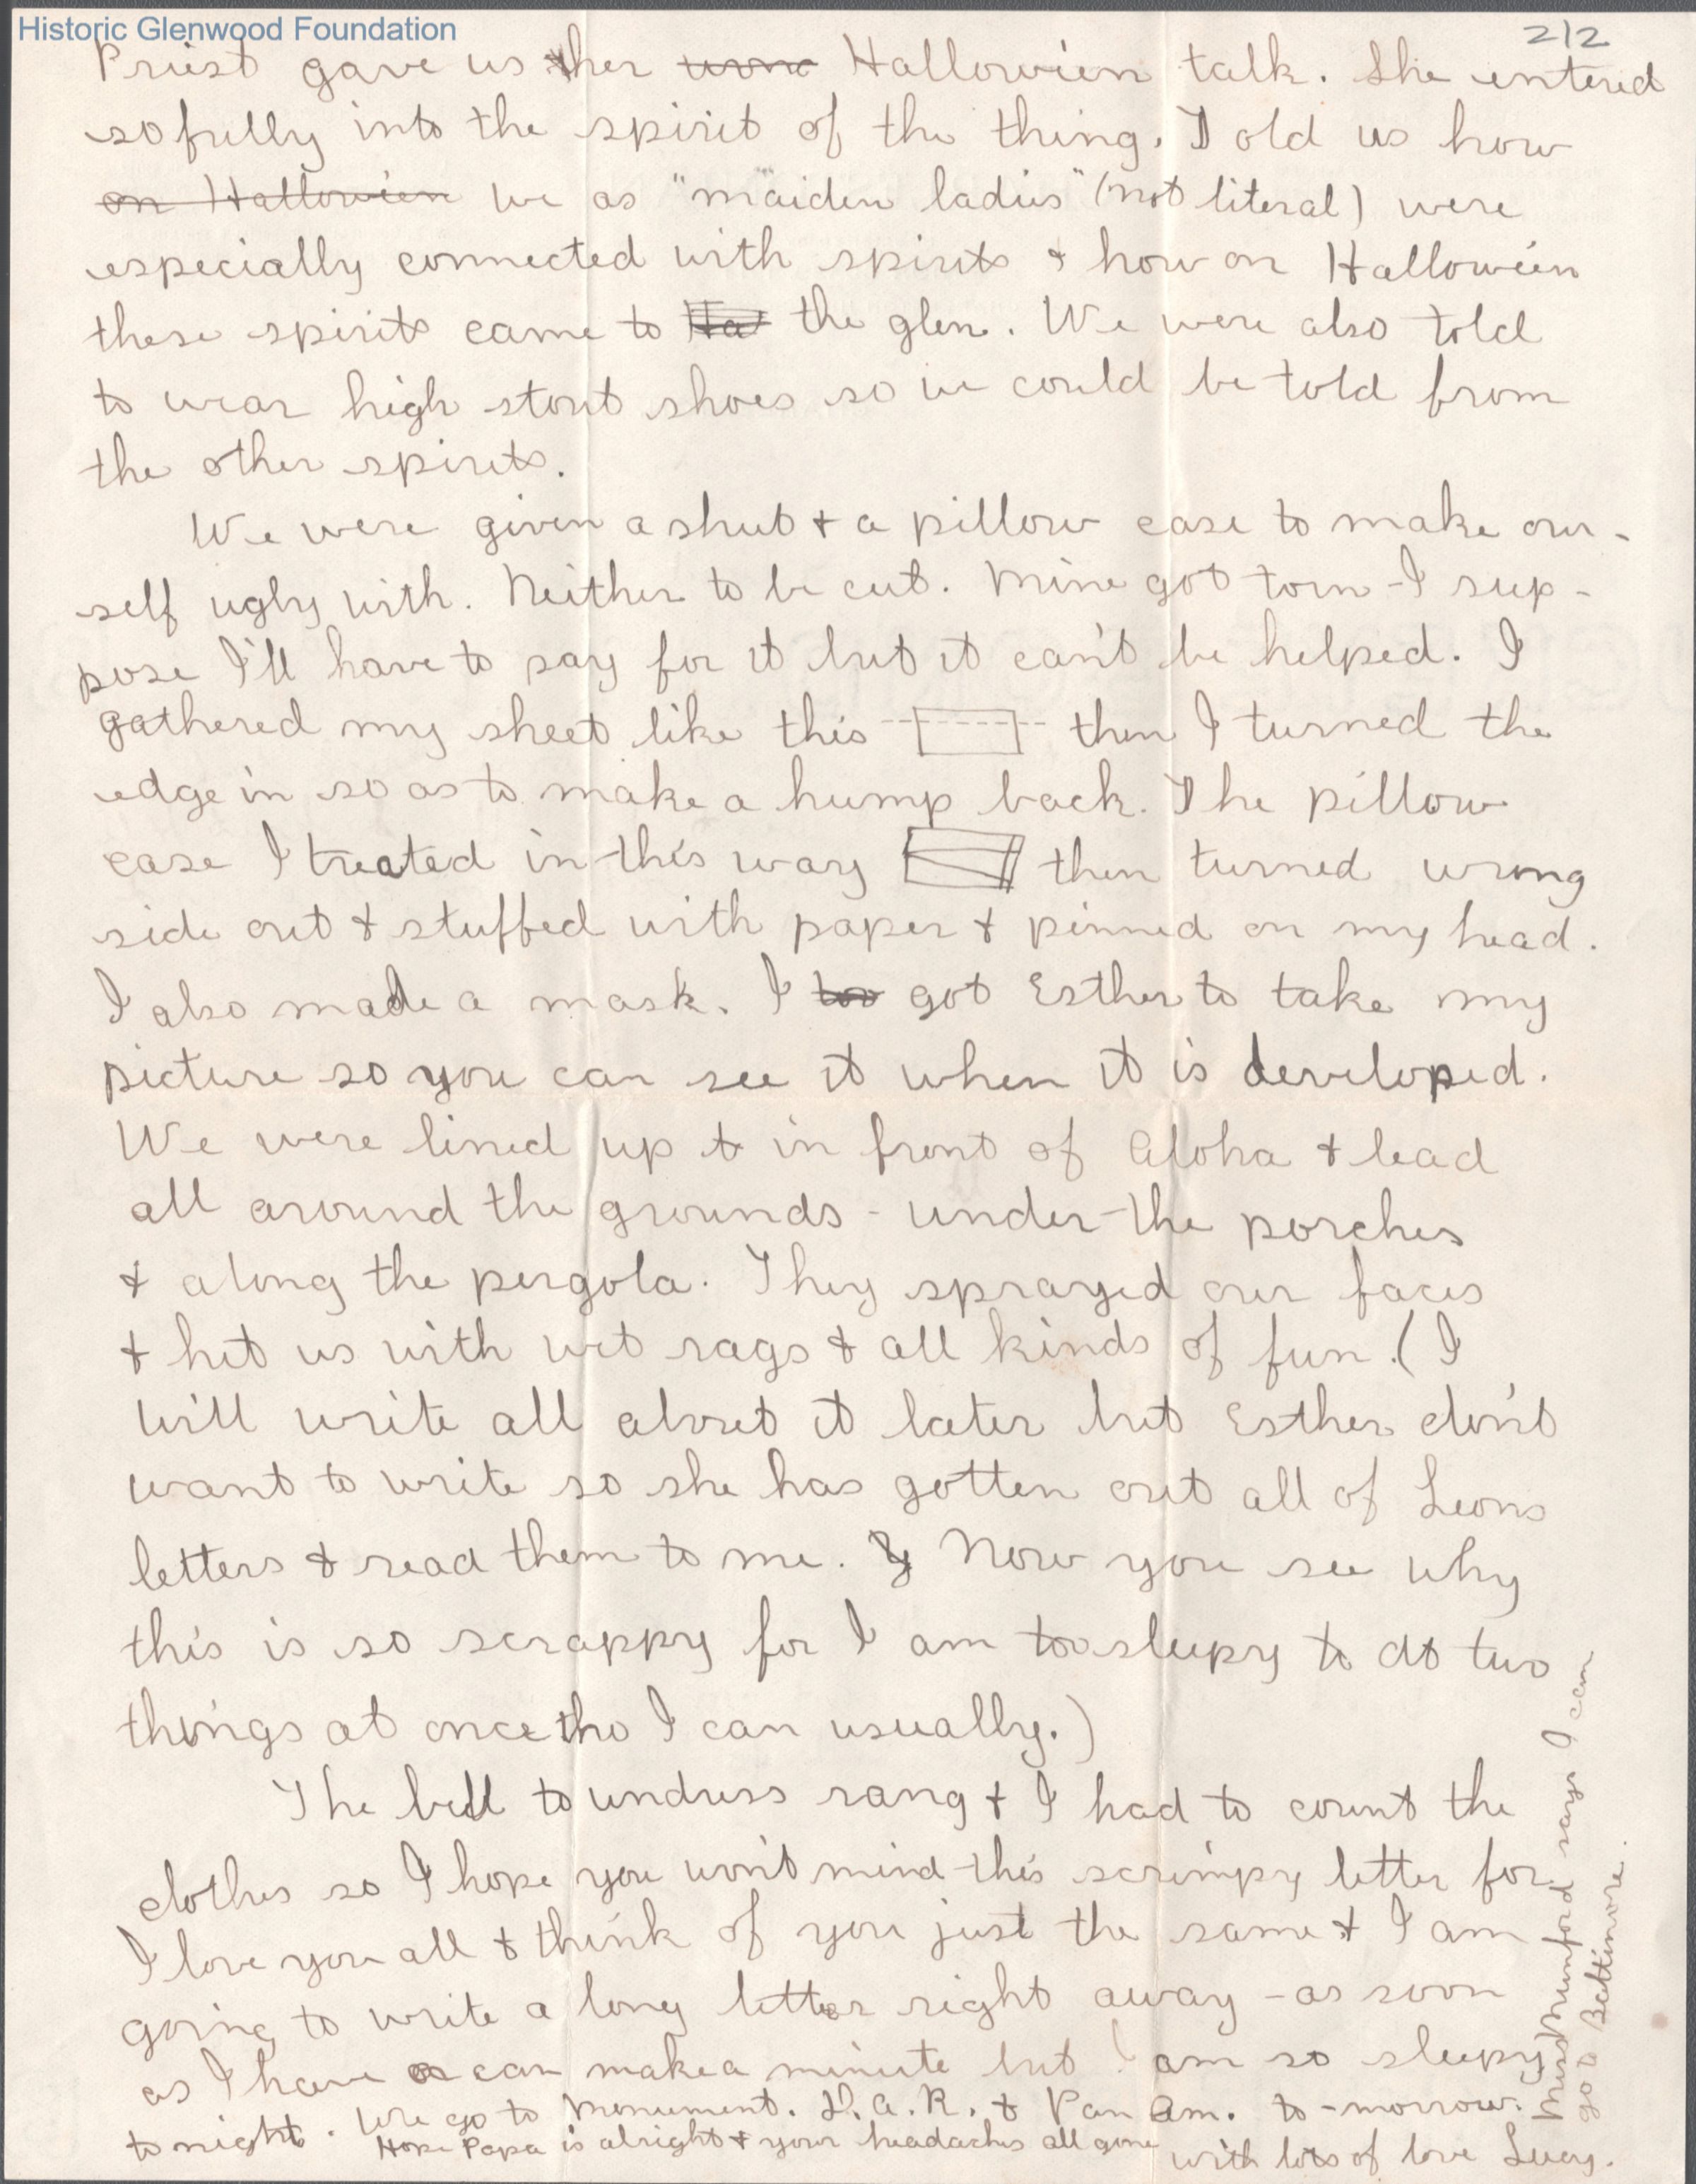 Historic Glenwood Foundation
212
Priest gave us her Halloween talk. She entered
so fully into the spirit of the thing. Told us how
on Halloween we as "maiden ladies" (not literal) were
especially connected with spirits & how on Halloween
these spirits came to Ha the glen. We were also told
to wear high stout shoes so we could be told from
the other spirits.
We were given a sheet & a pillow case to make our-
self ugly with. Neither to be cut. Mine got torn - I sup-
pose I'll have to pay for it but it can't be helped. I
gathered my sheet like this then I turned the
edge in so as to make a hump back. The pillow
case I treated in this way then turned wrong
side out & stuffed with paper & pinned on my head.
I also made a mask. I got Esther to take my
picture so you can see it when it is developed.
We were lined up in front of Aloha & lead
all around the grounds - under the porches
& along the pergola. They sprayed our faces
& hit us with wet rags & all kinds of fun. (I
will write all about it later but Esther don't
want to write so she has gotten out all of Leons
letters & read them to me. Now you see why
this is so scrappy for I am too sleepy to do two
things at once tho I can usually.)
The bell to undress rang & I had to count the
clothes so I hope you won't mind this scrimpy letter for
I love you all & think of you just the same & I am
going to write a long letter right away - as soon
as I have can make a minute but I am so sleepy
to night. We go to Monument. D.A.R. & Pan Am. to-morrow.
Hope Papa is alright & your headaches all gone
with lots of love Lucy.
Miss Mumford says I can
go to Baltimore.